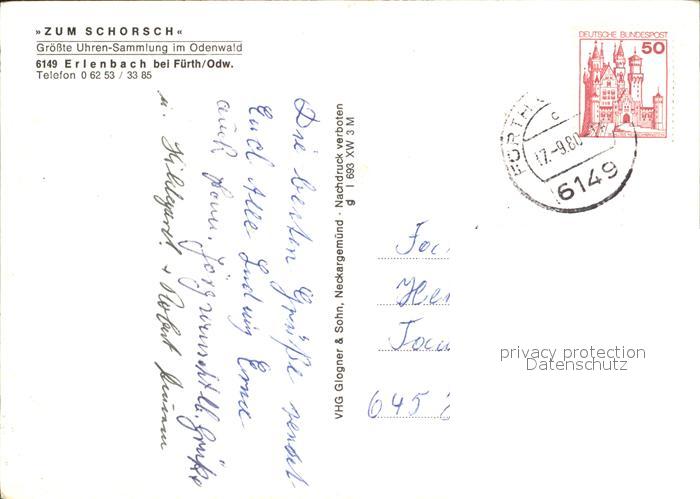 »ZUM SCHORSCH«
Größte Uhren-Sammlung im Odenwald
6149 Erlenbach bei Fürth/Odw.
Telefon 0 62 53 / 33 85
Die besten Grüße sendet
Euch Alle Ludwig Erna
auch Fam. Jörg wünscht lb. Grüße
u. Hildegard + Robert
VHG Glogner & Sohn, Neckargemünd · Nachdruck verboten
g I 693 XW 3 M
DEUTSCHE BUNDESPOST
50
FÜRTH
c
17.-9.80
6149
645
privacy protection
Datenschutz